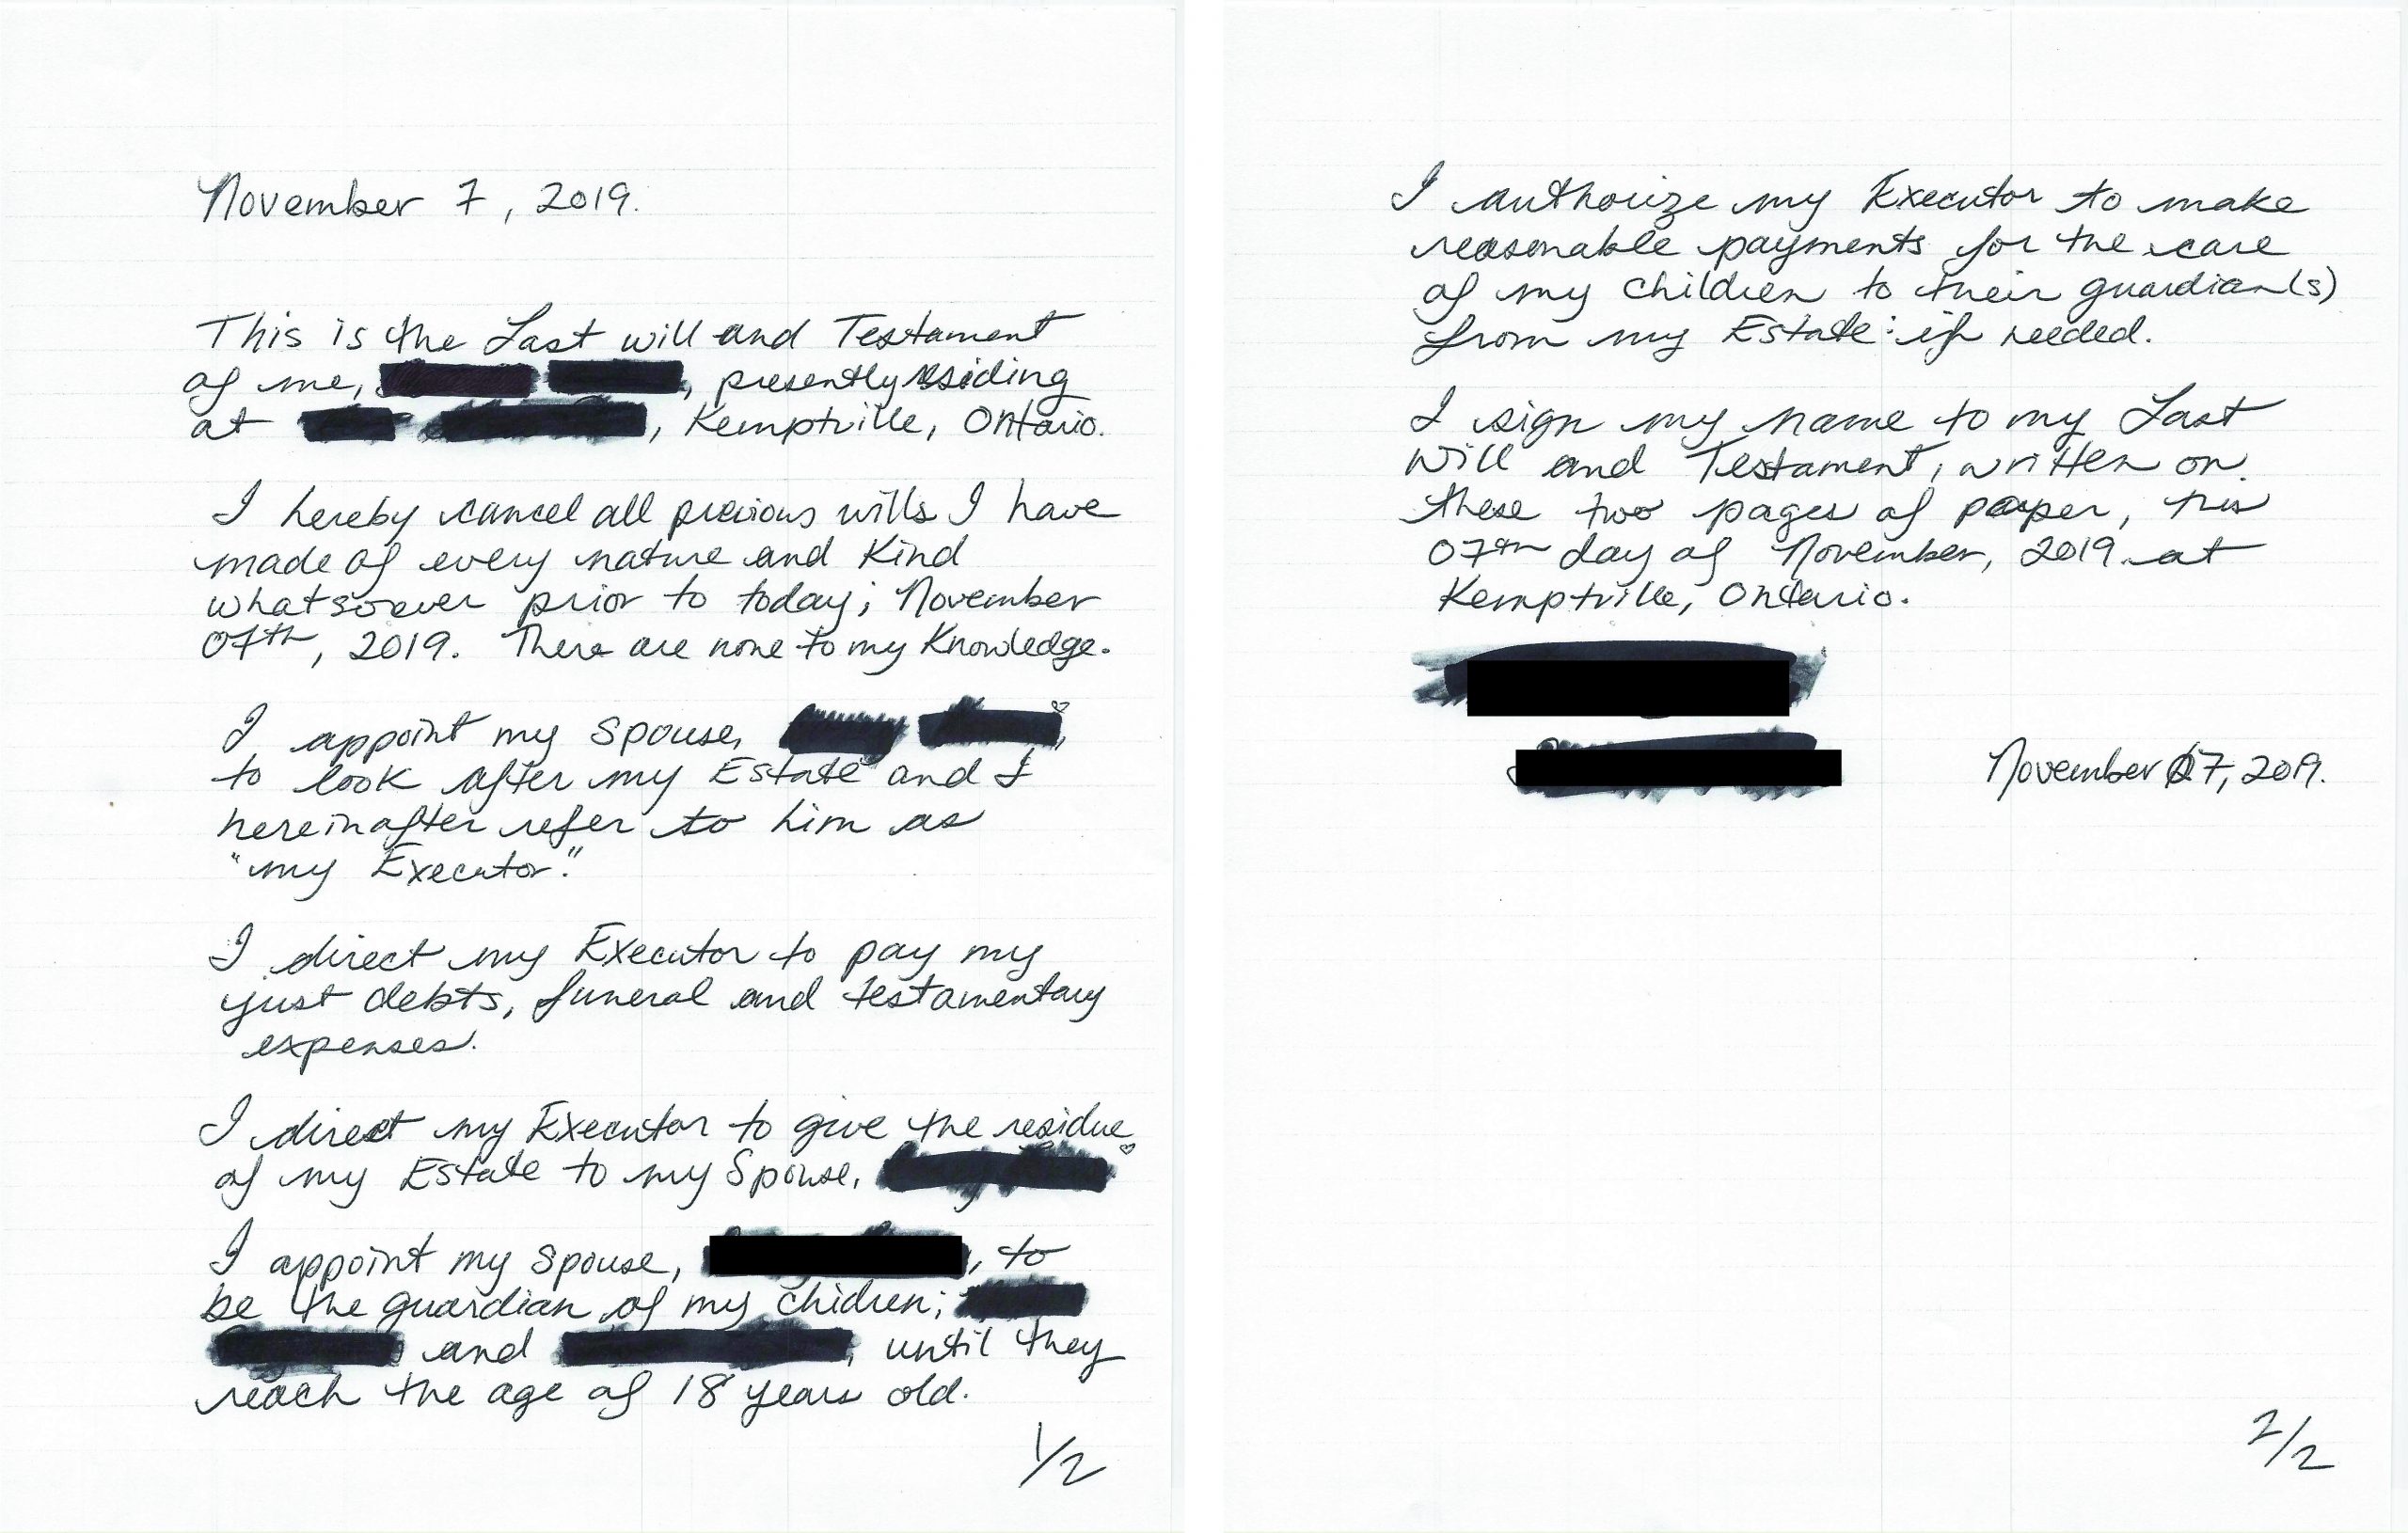 November 7, 2019.
This is the Last will and Testament
of me, , presently residing
at , Kemptville, Ontario.
I hereby cancel all previous wills I have
made of every nature and Kind
whatsoever prior to today; November
07th, 2019. There are none to my Knowledge.
I appoint my Spouse,
to look after my Estate and I
hereinafter refer to him as
"my Executor."
I direct my Executor to pay my
just debts, funeral and testamentary
expenses.
I direct my Executor to give the residue
of my Estate to my Spouse,
I appoint my Spouse, , to
be the guardian of my chidren;
and , until they
reach the age of 18 years old.
1/2
I authorize my Executor to make
reasonable payments for the care
of my children to their guardian(s)
from my Estate: if needed.
I sign my name to my Last
Will and Testament, written on
these two pages of paper, this
07th day of November, 2019 at
Kemptville, Ontario.
November 07, 2019.
2/2